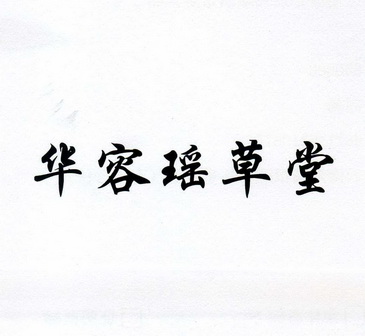 华容瑶草堂